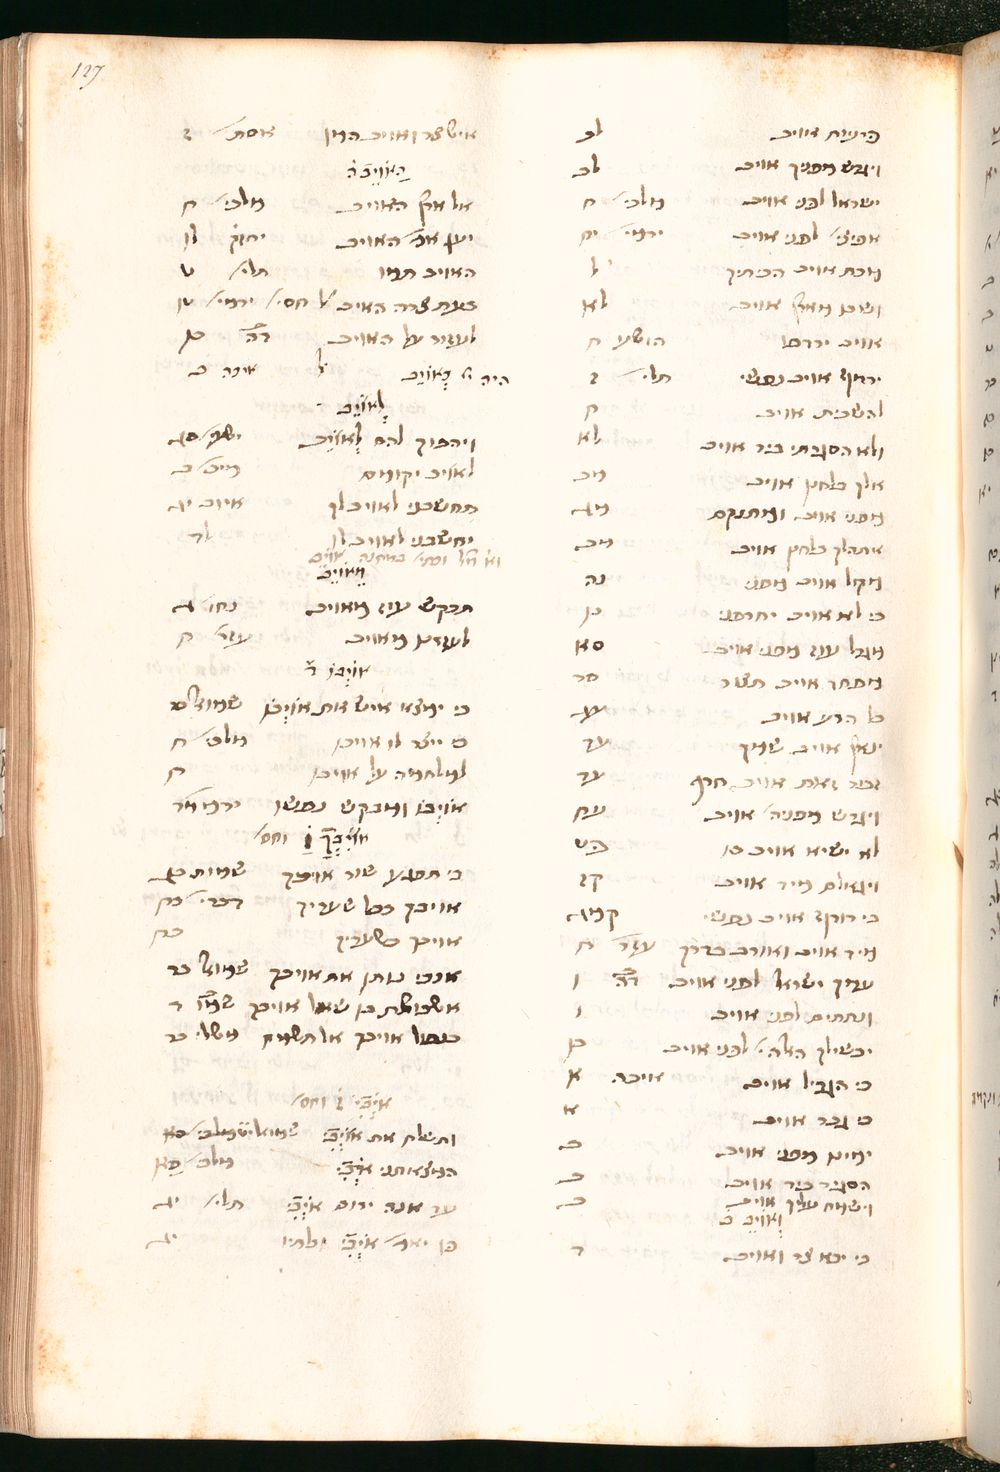 127
כעס אויב לב
ויגרש מפניך אויב לג
ישראל לפני אויב מלכי' ח
אפיצ' לפני אויב ירמי' יח
מכת אויב הכיתיך ל
ושבו מארץ אויב לא
אויב ירדפו הושע ח
ירדוף אויב נפשי תלי' ז
להשבית אויב ח
ולא הסגרתי ביד אויב לא
אלך בלחץ אויב מב
מפני אויב ומתנקם מד
אתהלך בלחץ אויב מג
מקול אויב מפני נה
כי לא אויב יחרפני נה
מגדל עוז מפני אויב סא
מפחד אויב תצור סד
כל הרע אויב עד
ינאץ אויב שמך עד
זכור זאת אויב חרף עד
ויגרש מפניה' אויב עח
לא ישיא אויב בו פט
ויגאלם מיד אויב קו
כי רדף אויב נפשי קמג
מיד אויב ואורב בדרך עזר' ח
עמך ישראל לפני אויב דה ו
ונתתם לפני אויב ו
יכשילך האלה' לפני אויב כה
כי הגדיל אויב איכה א
כי גבר אויב א
ימינו מפני אויב ב
הסגיר ביד אויב ב
וישמח עליך אויב ב
וְאוֹיֵב ב
כי יבא צר ואויב ד
איש צר ואויב המן אסת' ז
הָאוֹיֵב
אל ארץ האויב מלכי' ח
יען אמר האויב יחזק' לו
האויב תמו תלי' ט
ובעת צרה האויב ל' חס' ירמי' טו
לעזור על האויב דה כו
היה י"י כְּאוֹיֵב ל' איכה ב
לְאוֹיֵב
ויהפך להם לְאוֹיֵב ישעי' סג
לאויב יקומם מיכ' ב
תחשבני לאויב לך איוב יג
יחשבני לאויב לו לג
מֵאוֹיֵב
תבקש עוז מאויב נחו' ג
לעזרנו מאויב עזר' ח
אוֹיְבוֹ ד
כי ימצא איש את אוֹיְבוֹ שמואל כד
כי ייצר לו אויבו מלכי' ח
למלחמה על אויבו ח
אוֹיְבוֹ ומבקש נפשו ירמי' מד
אוֹיִבְךָ וחס'
כי תפגע שור אויבך שמות כג
אויבך בכל שעריך דברי' כח
אויבך בשעריך כח
אנכי נותן את אויבך שמואל כד
איש בשת בן שאול אויבך שמו' ד
בנפול אויבך אל תשמח משלי כד
אוֹיְבִי ז וחס'
ותשלח את אוֹיְבִי שמואל יט מלכי' כא
המצאתני אוֹיְבִי מלכי' כא
עד אנה ירום אוֹיְבִי תלי' יג
פן יאמר אוֹיְבִי יכלתיו יג